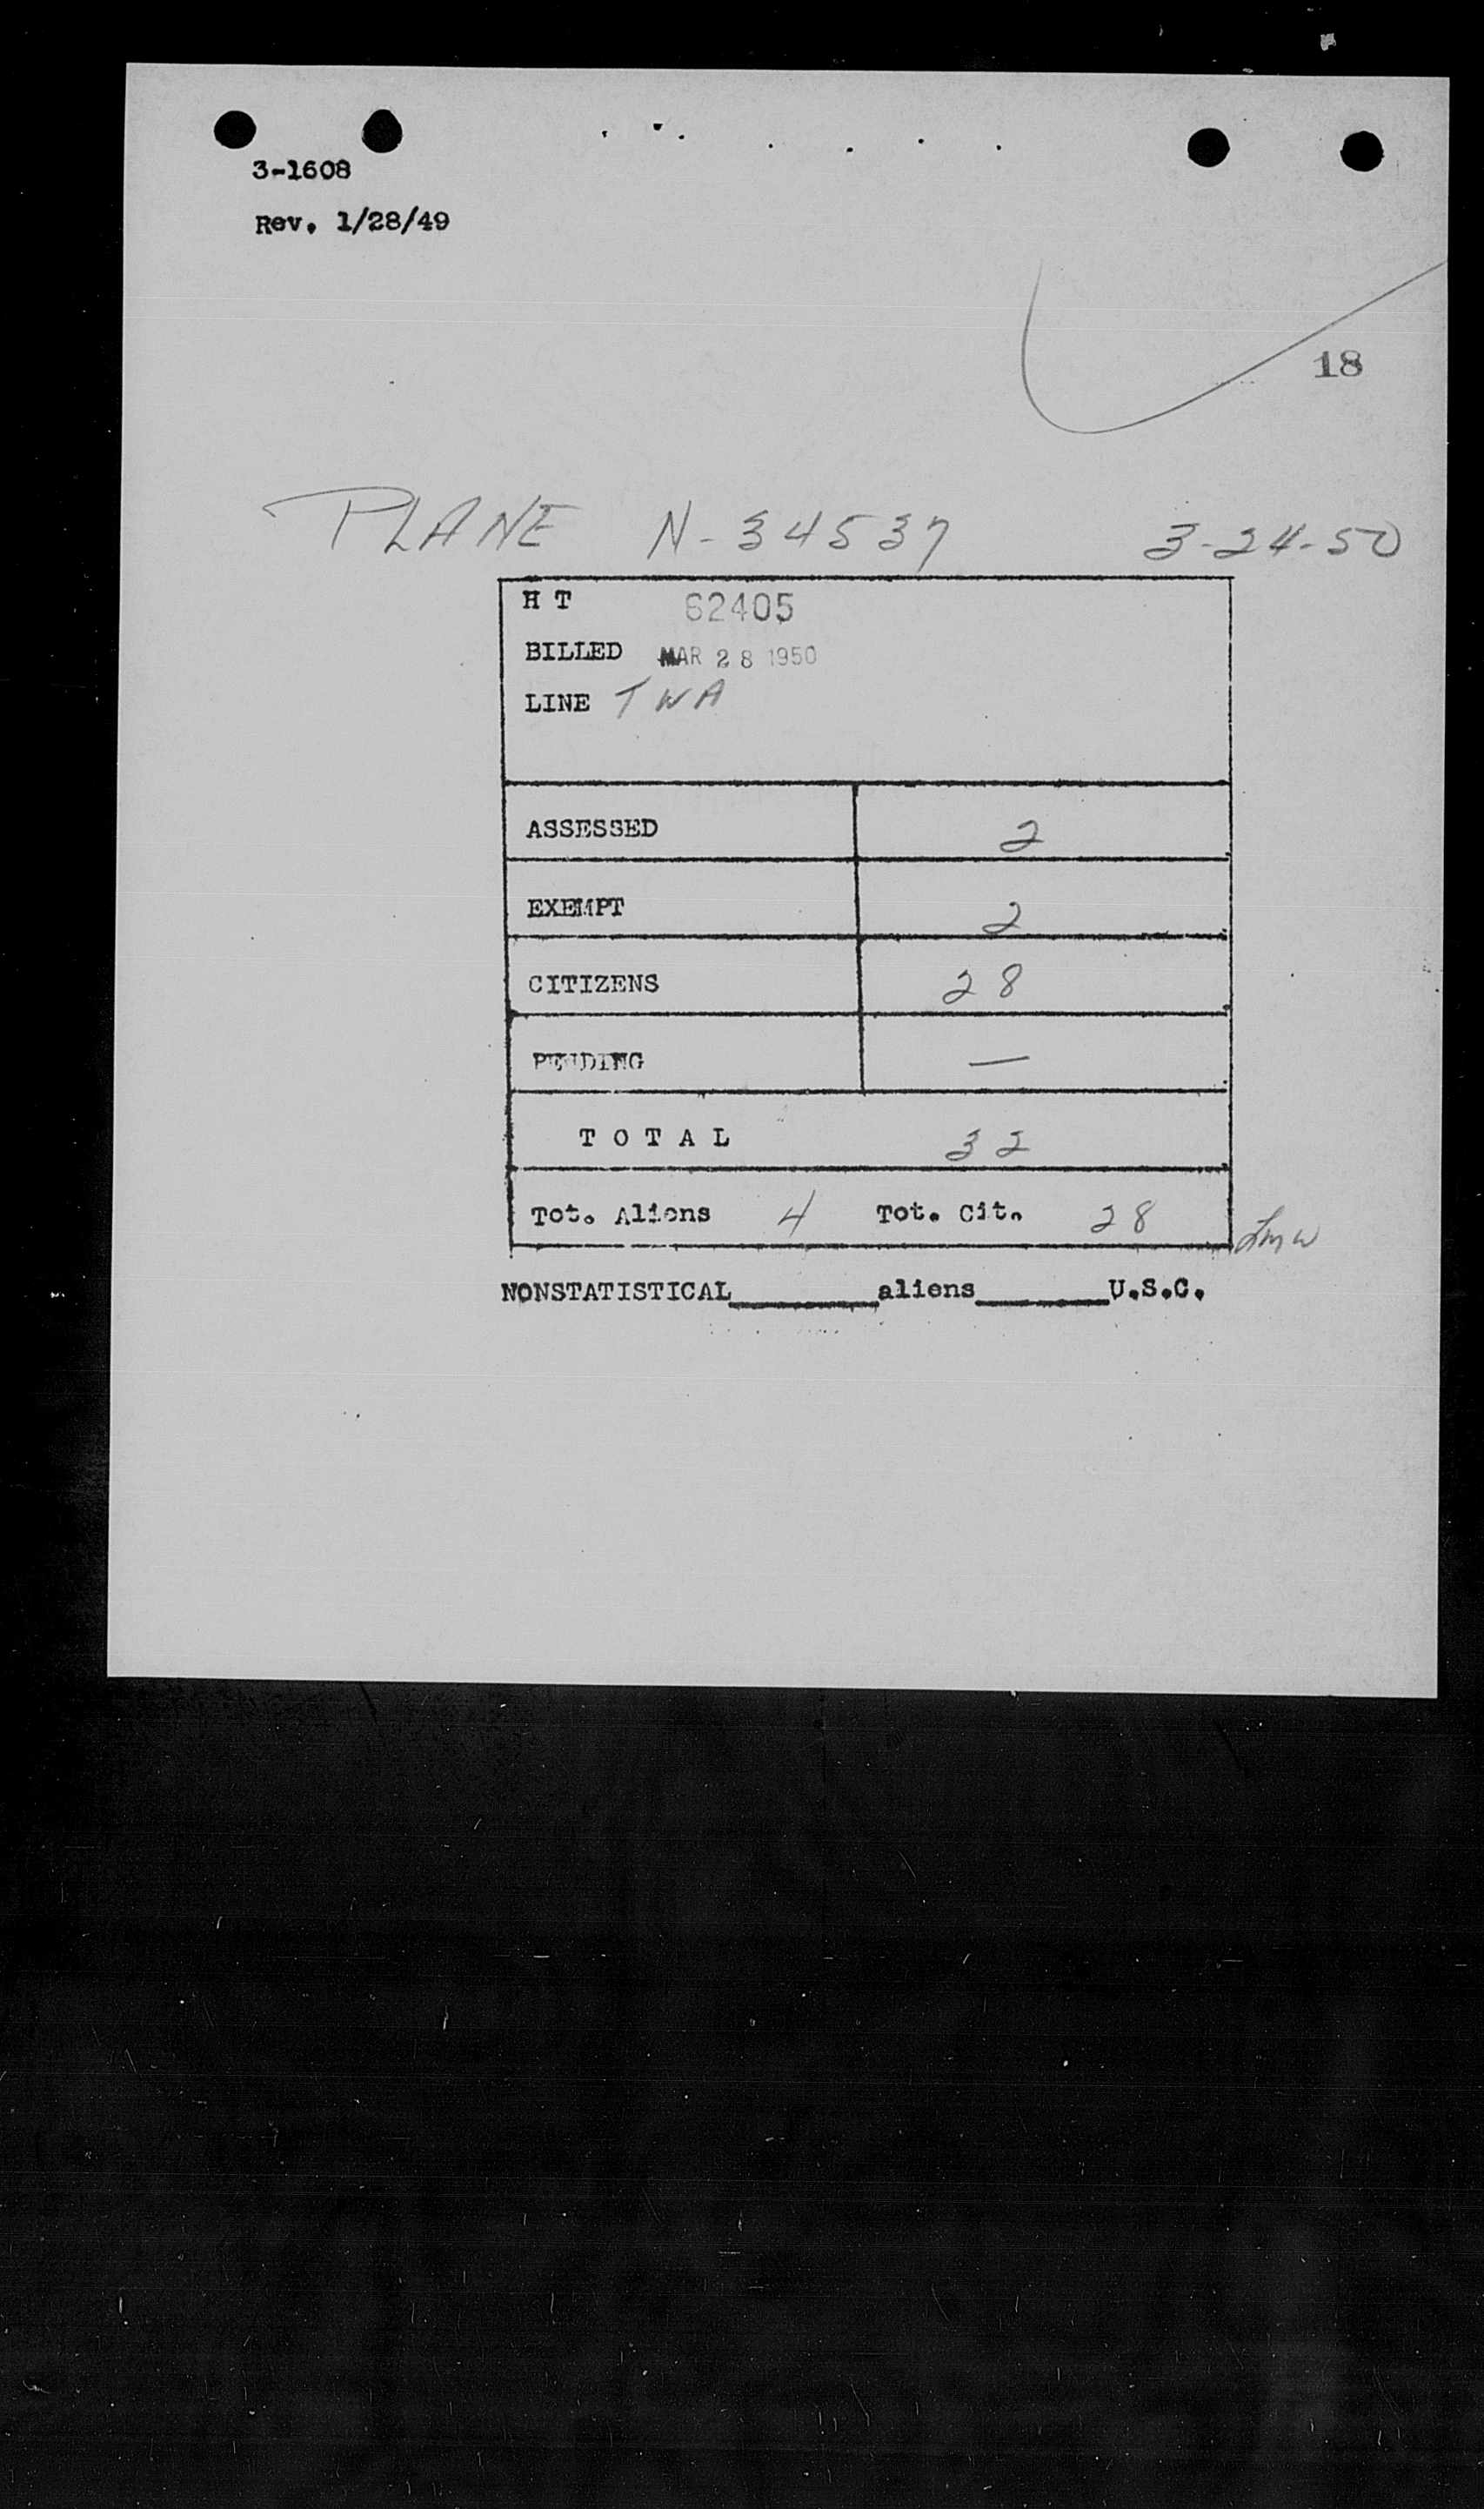 3-1608
Rev. 1/28/49
18
PLANE N-34537 3-24-50
H T 62405
BILLED MAR 28 1950
LINE TWA
ASSESSED 2
EXEMPT 2
CITIZENS 28
PENDING —
TOTAL 32
Tot. Aliens 4 Tot. Cit. 28
Lmw
NONSTATISTICAL________aliens_______U.S.C.